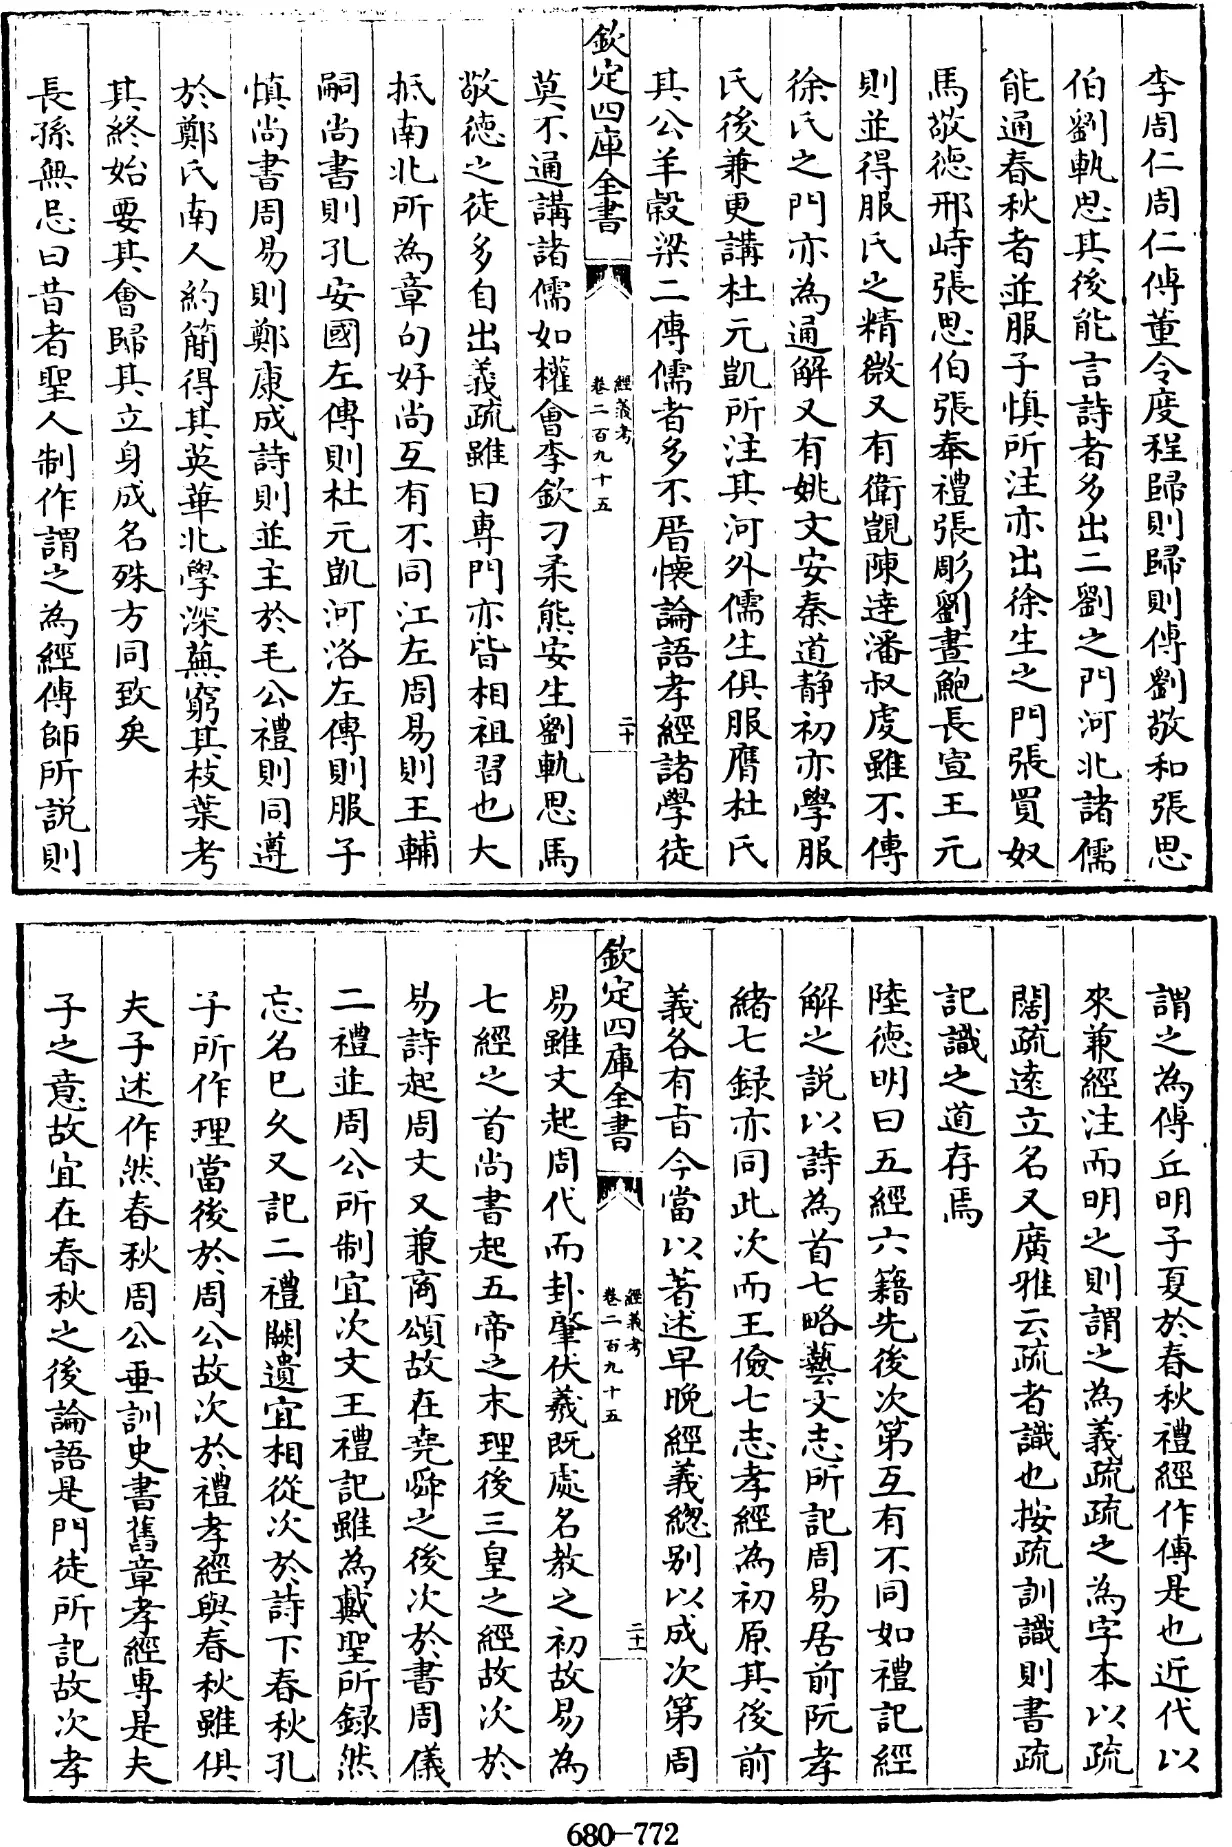 李周仁周仁傳董令度程歸則歸則傳劉敬和張思
伯劉軌思其後能言詩者多出二劉之門河北諸儒
能通春秋者並服子慎所注亦出徐生之門張買奴
馬敬德邢峙張思伯張奉禮張彫劉晝鮑長宣王元
則並得服氏之精微又有衛覬陳達潘叔虔雖不傳
徐氏之門亦為通解又有姚文安秦道靜初亦學服
氏後兼更講杜元凱所注其河外儒生俱服膺杜氏
其公羊穀梁二傳儒者多不厝懐論語孝經諸學徒
欽定四庫全書
經義考
卷二百九十五
二十
莫不通講諸儒如權會李欽刁柔熊安生劉軌思馬
敬德之徒多自出義疏雖曰專門亦皆相祖習也大
抵南北所為章句好尚互有不同江左周易則王輔
嗣尚書則孔安國左傳則杜元凱河洛左傳則服子
慎尚書周易則鄭康成詩則並主於毛公禮則同遵
於鄭氏南人約簡得其英華北學深蕪窮其枝葉考
其終始要其會歸其立身成名殊方同致矣
長孫無忌曰昔者聖人制作謂之為經傳師所説則
謂之為傳丘明子夏於春秋禮經作傳是也近代以
來兼經注而明之則謂之為義疏疏之為字本以疏
闊疏遠立名又廣雅云疏者識也按疏訓識則書疏
記識之道存焉
陸德明曰五經六籍先後次第互有不同如禮記經
解之説以詩為首七略藝文志所記周易居前阮孝
緒七録亦同此次而王儉七志孝經為初原其後前
義各有旨今當以著述早晚經義總别以成次第周
欽定四庫全書
經義考
卷二百九十五
二十一
易雖文起周代而卦肇伏羲既處名教之初故易為
七經之首尚書起五帝之末理後三皇之經故次於
易詩起周文又兼商頌故在堯舜之後次於書周儀
二禮並周公所制宜次文王禮記雖為戴聖所録然
忘名已久又記二禮闕遺宜相從次於詩下春秋孔
子所作理當後於周公故次於禮孝經與春秋雖俱
夫子述作然春秋周公垂訓史書舊章孝經專是夫
子之意故宜在春秋之後論語是門徒所記故次孝
680-772